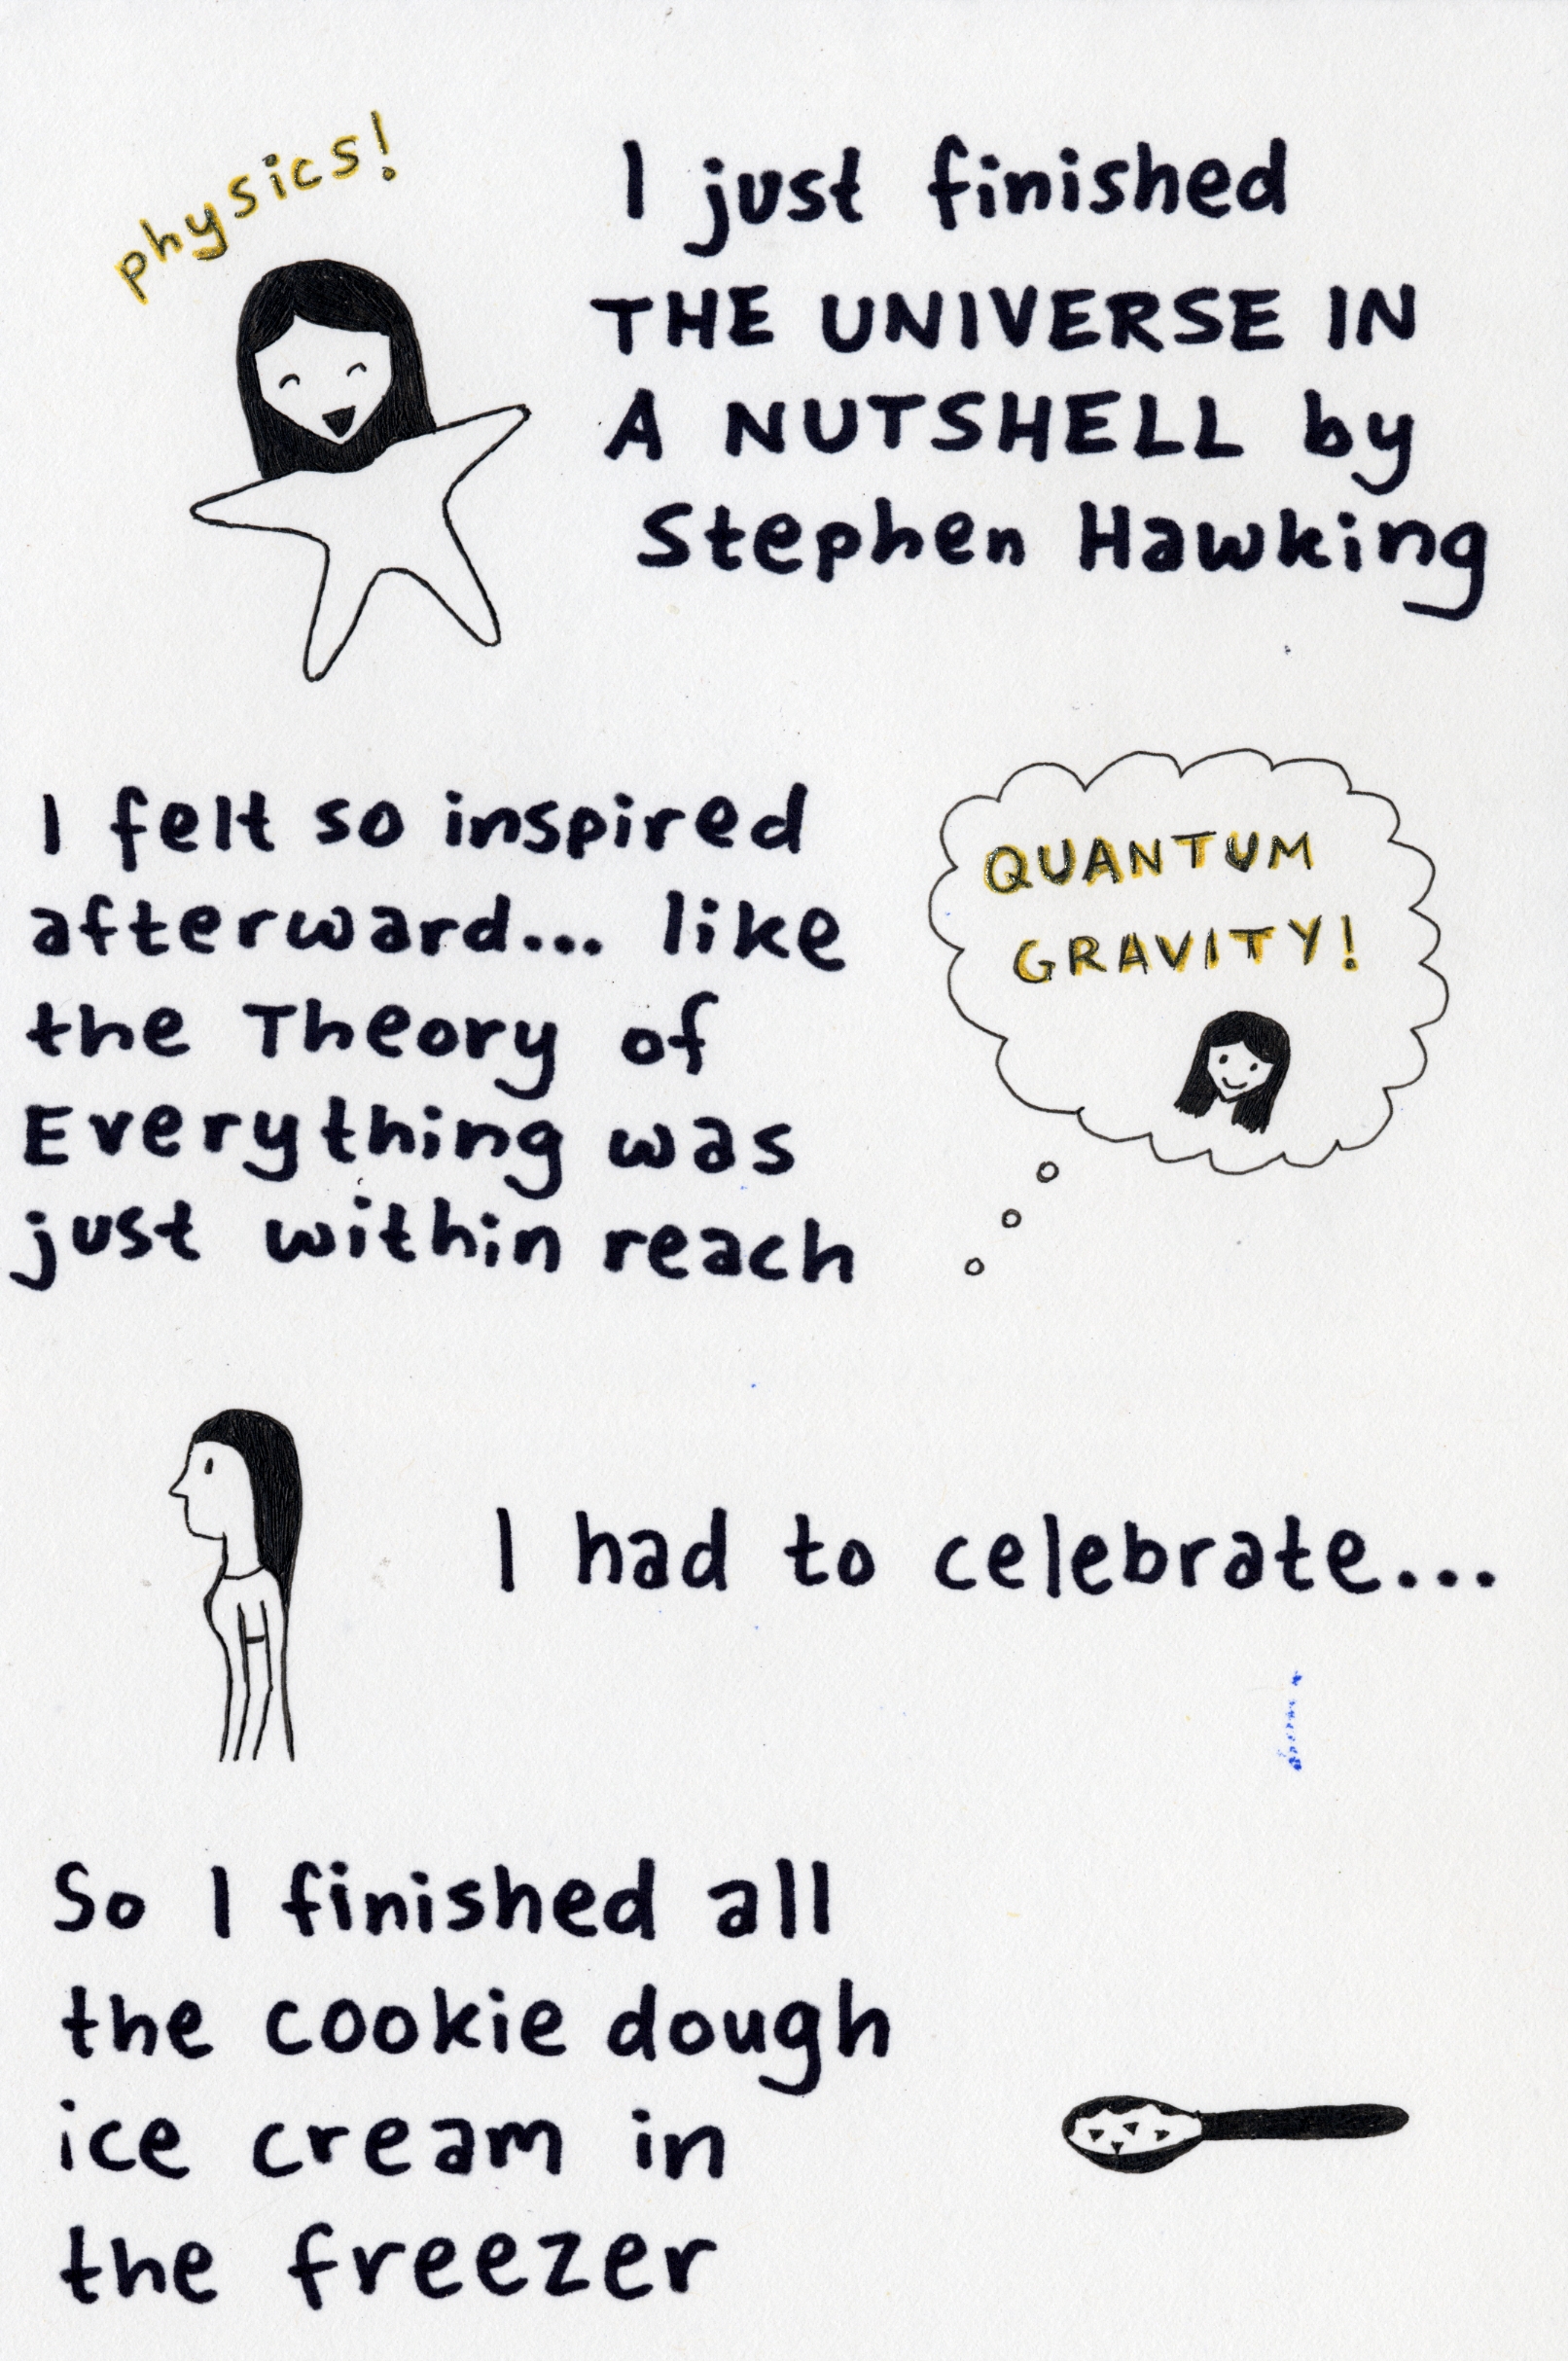 physics!
I just finished
THE UNIVERSE IN
A NUTSHELL by
Stephen Hawking
I felt so inspired
afterward... like
the Theory of
Everything was
just within reach
QUANTUM
GRAVITY!
I had to celebrate...
So I finished all
the cookie dough
ice cream in
the freezer